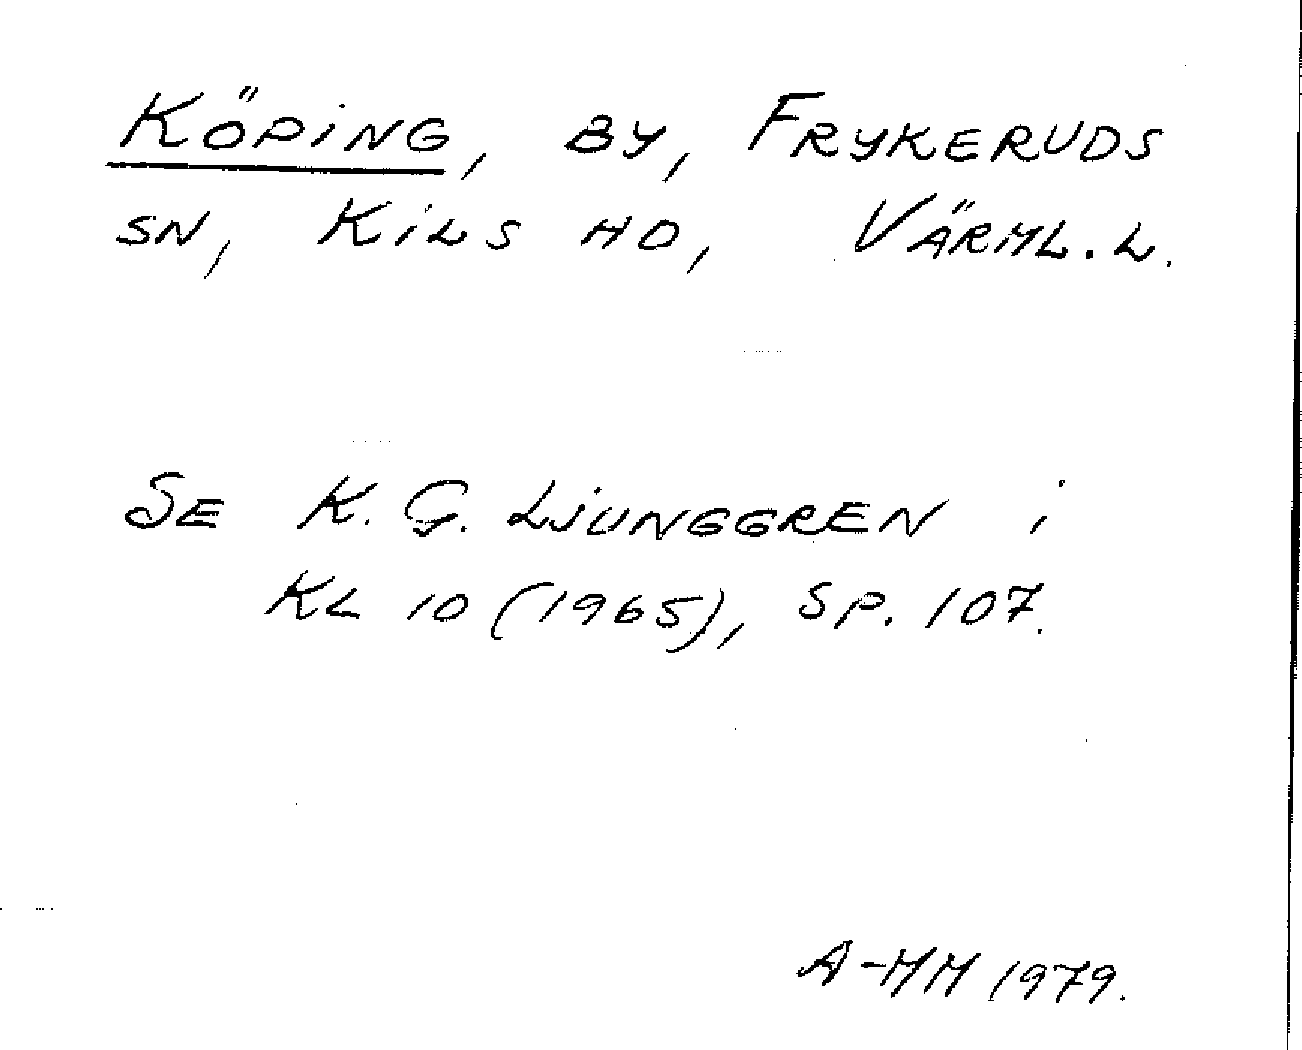 KÖPING, BY, FRYKERUDS
SN, KILS HD, VÄRML. L.
SE K. G. LJUNGGREN i
KL 10 (1965), SP. 107.
A-MM 1979.